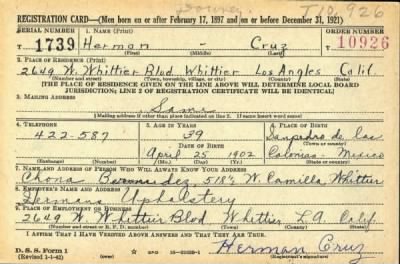 Downey T10,926
REGISTRATION CARD—(Men born on or after February 17, 1897 and on or before December 31, 1921)
SERIAL NUMBER 1. NAME (Print) ORDER NUMBER
T 1739 Herman - Cruz 10926
(First) (Middle) (Last)
2. PLACE OF RESIDENCE (Print)
2649 W. Whittier Blvd Whittier Los Angles Calif.
(Number and street) (Town, township, village, or city) (County) (State)
[THE PLACE OF RESIDENCE GIVEN ON THE LINE ABOVE WILL DETERMINE LOCAL BOARD
JURISDICTION; LINE 2 OF REGISTRATION CERTIFICATE WILL BE IDENTICAL]
3. MAILING ADDRESS
Same
[Mailing address if other than place indicated on line 2. If same insert word same]
4. TELEPHONE 5. AGE IN YEARS 6. PLACE OF BIRTH
422-587 39 San pedro de Las
DATE OF BIRTH (Town or county)
April 25 1902 Colonias - Mexico
(Exchange) (Number) (Mo.) (Day) (Yr.) (State or country)
7. NAME AND ADDRESS OF PERSON WHO WILL ALWAYS KNOW YOUR ADDRESS
Chona 518½ W. Camilla, Whittier
8. EMPLOYER'S NAME AND ADDRESS
Hermans Upholstery
9. PLACE OF EMPLOYMENT OR BUSINESS
2649 W. Whittier Blvd Whittier L.A. Calif.
(Number and street or R. F. D. number) (Town) (County) (State)
I AFFIRM THAT I HAVE VERIFIED ABOVE ANSWERS AND THAT THEY ARE TRUE.
D. S. S. Form 1
(Revised 1-1-42) (over) Herman Cruz
(Registrant's signature)